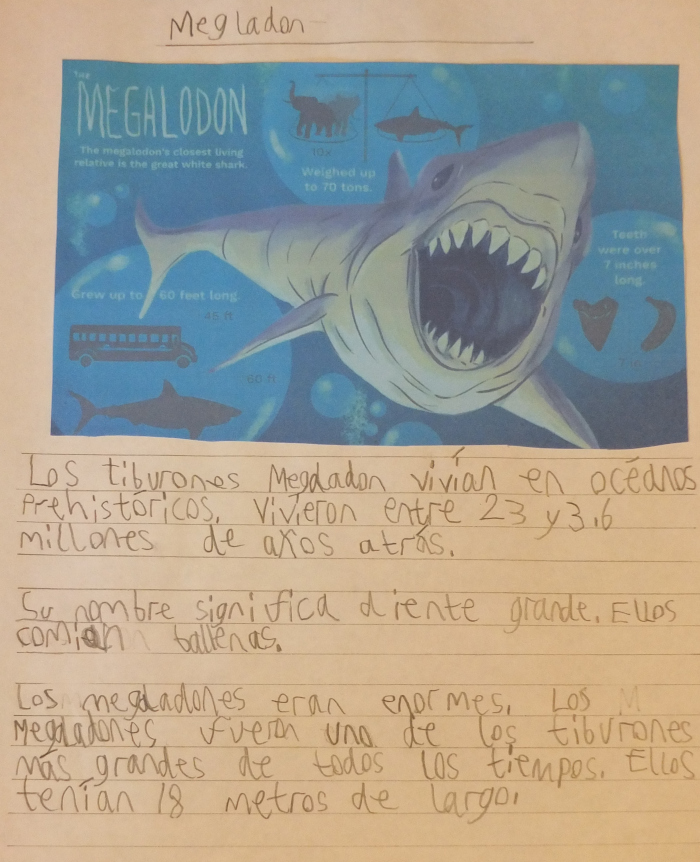 Megladon
THE
MEGALODON
The megalodon's closest living
relative is the great white shark.
10x
Weighed up
to 70 tons.
Teeth
were over
7 inches
long.
Grew up to 60 feet long
45 ft
60 ft
7 in
Los tiburones Megaladon vivían en océanos
prehistóricos. Vivieron entre 23 y 3.6
millones de años atrás.
Su nombre significa diente grande. Ellos
comían ballenas.
Los megaladones eran enormes. Los
Megaladones fueron uno de los tiburones
más grandes de todos los tiempos. Ellos
tenían 18 metros de largo.